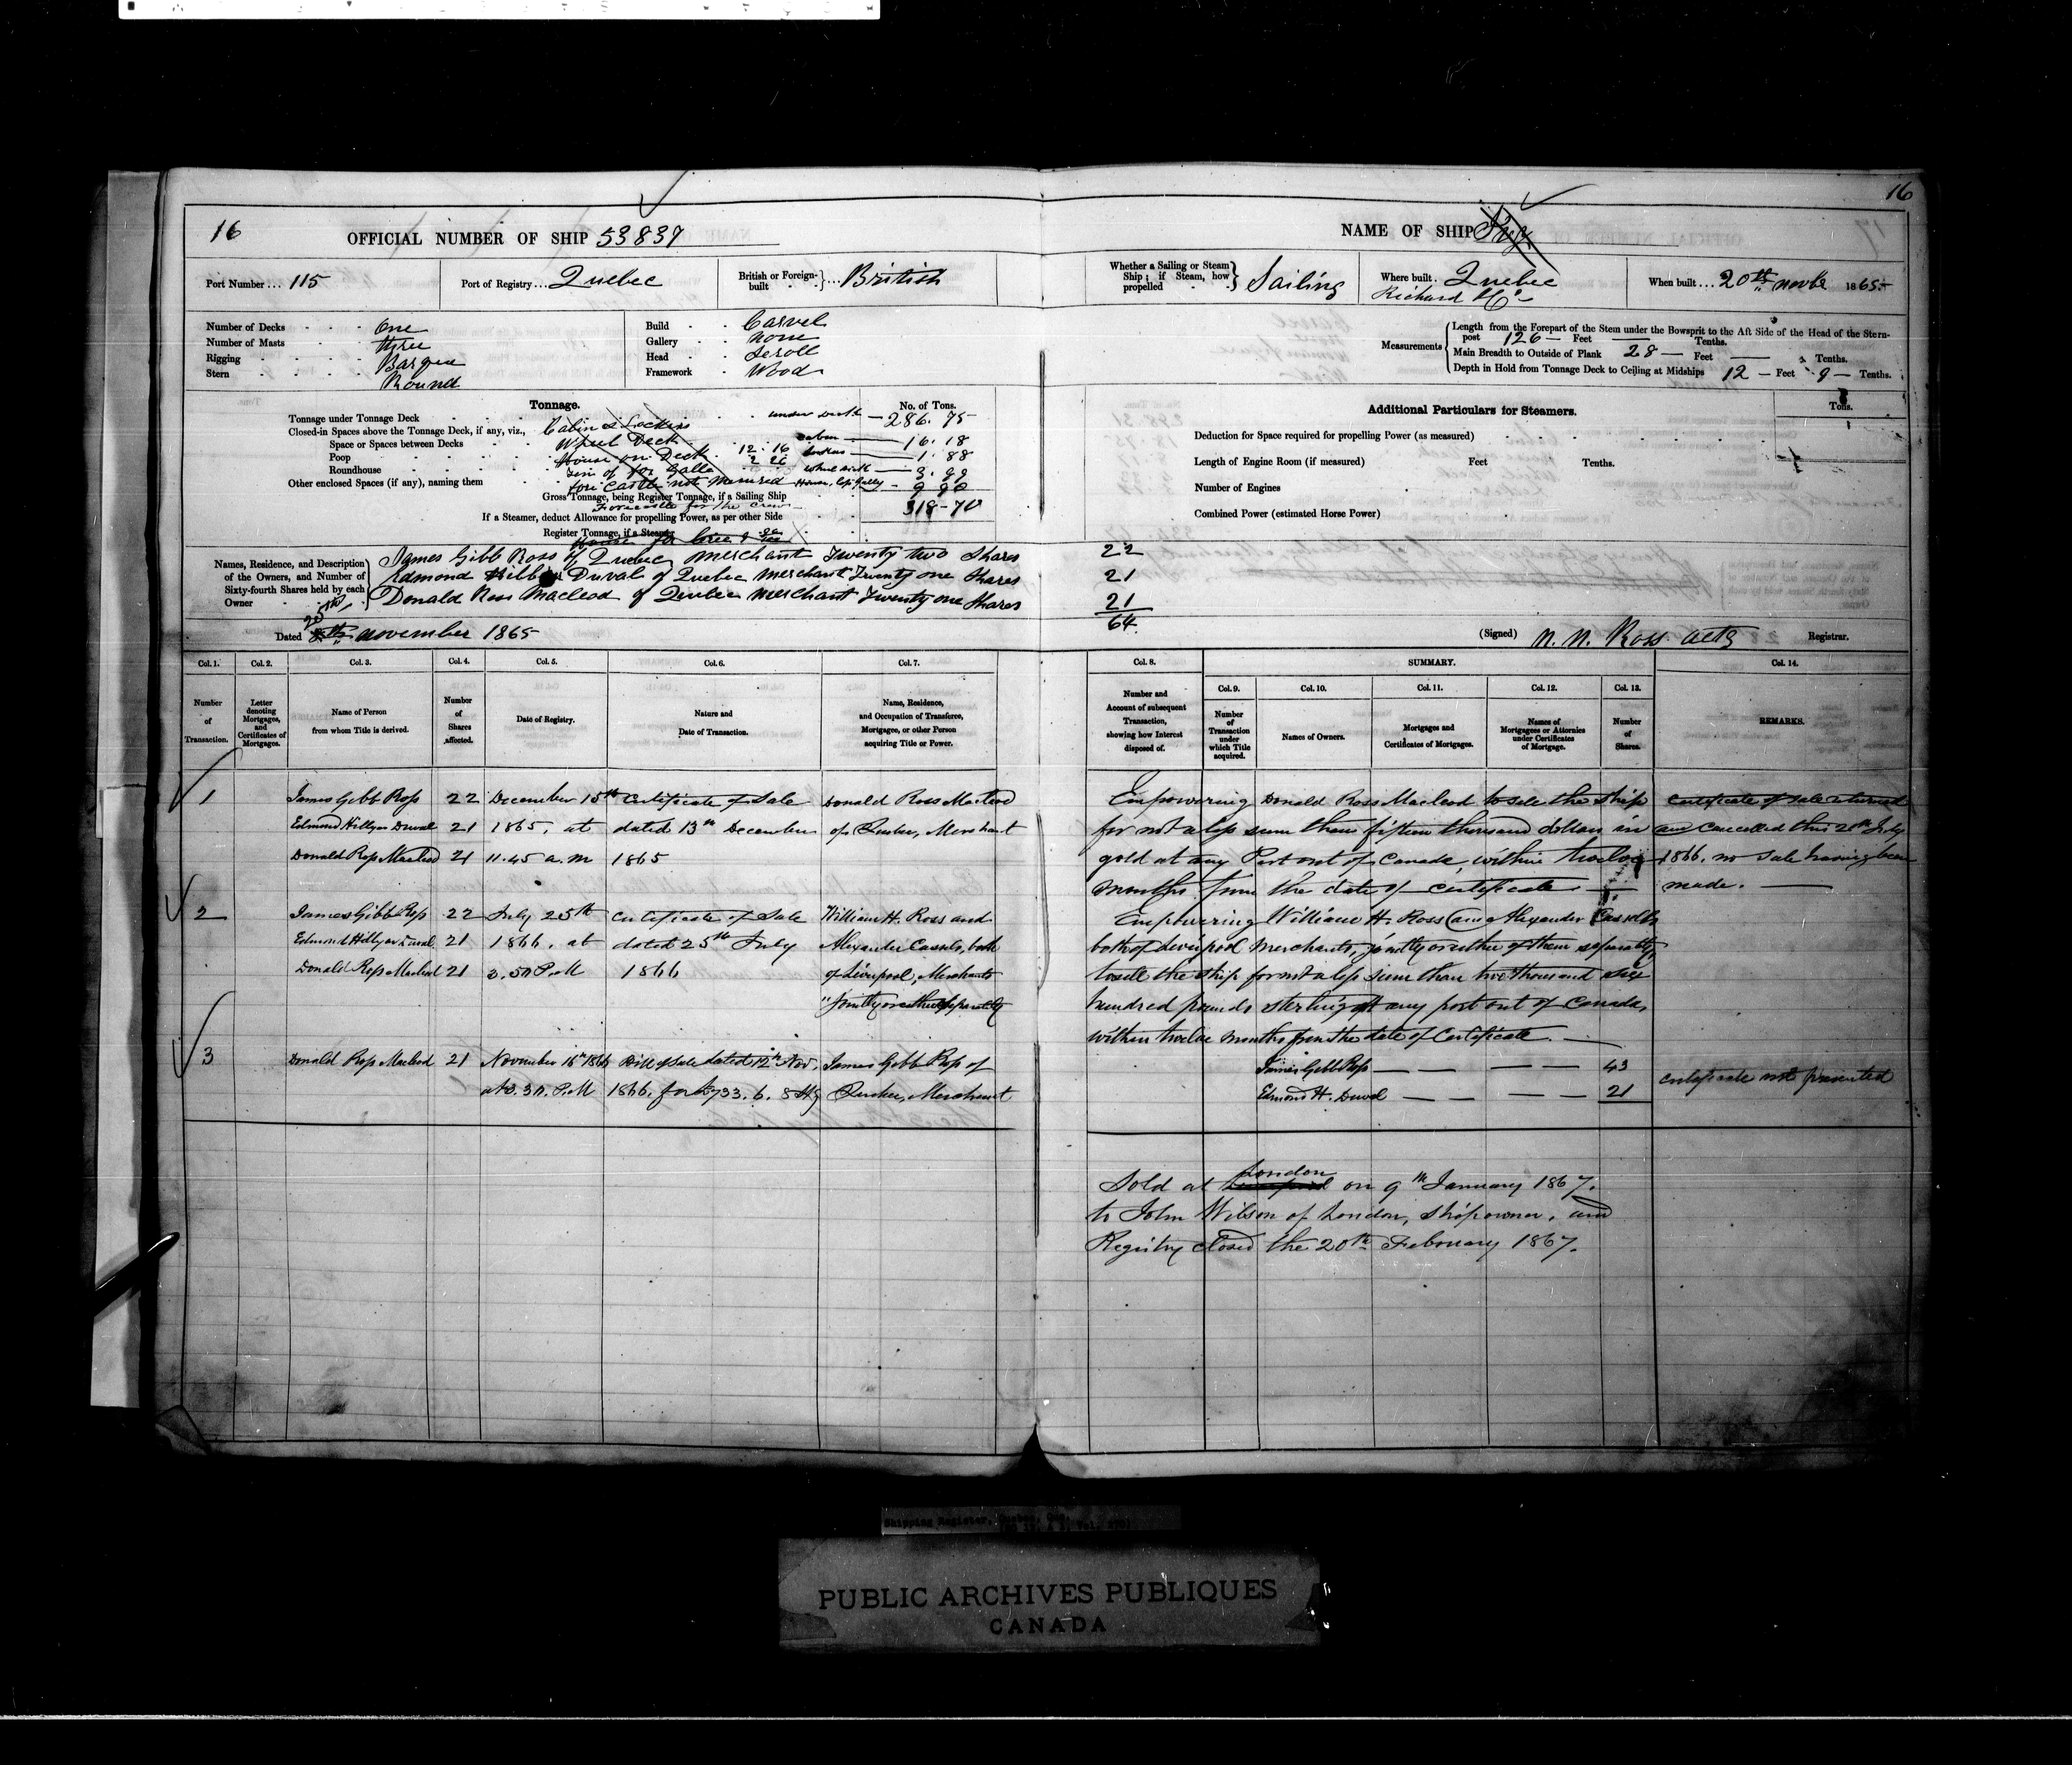 16
16
OFFICIAL NUMBER OF SHIP 53839
NAME OF SHIP
Port Number ... 115
Port of Registry ... Quebec
British or Foreign-built ... British
Whether a Sailing or Steam Ship; if Steam, how propelled Sailing
Where built. Quebec
Richard & Co
When built ... 20th Novbr 1865
Number of Decks One
Number of Masts three
Rigging Barque
Stern Round
Build Carvel
Gallery None
Head Scroll
Framework Wood
Measurements
Length from the Forepart of the Stem under the Bowsprit to the Aft Side of the Head of the Stern-
post 126 — Feet — Tenths.
Main Breadth to Outside of Plank 28 — Feet — Tenths.
Depth in Hold from Tonnage Deck to Ceiling at Midships 12 — Feet 9 — Tenths.
Tonnage.
No. of Tons.
Tonnage under Tonnage Deck under deck — 286.75
Closed-in Spaces above the Tonnage Deck, if any, viz., Cabin & Lockers
Space or Spaces between Decks Wheel Deck cabin — 16.18
Poop House on Deck 12.16 1.88
Roundhouse 2 26 wheel 3.99
Other enclosed Spaces (if any), naming them fore castle not measured House, Cps Gally — 9 90
Gross Tonnage, being Register Tonnage, if a Sailing Ship 318-70
Forecastle for the Crew
If a Steamer, deduct Allowance for propelling Power, as per other Side
Register Tonnage, if a Steamer
Additional Particulars for Steamers.
Tons.
Deduction for Space required for propelling Power (as measured)
Length of Engine Room (if measured) Feet Tenths.
Number of Engines
Combined Power (estimated Horse Power)
Names, Residence, and Description of the Owners, and Number of Sixty-fourth Shares held by each Owner
James Gibb Ross of Quebec Merchant Twenty two Shares 22
Edmond Duval of Quebec Merchant Twenty one Shares 21
Donald Ross Macleod of Quebec Merchant Twenty one Shares 21
64
Dated 25th November 1865
(Signed) N. N. Ross actg Registrar.
Col. 1. Col. 2. Col. 3. Col. 4. Col. 5. Col. 6. Col. 7. Col. 8. SUMMARY. Col. 14.
Col. 9. Col. 10. Col. 11. Col. 12. Col. 13.
Number of Transaction.
Letter denoting Mortgages, and Certificates of Mortgages.
Name of Person from whom Title is derived.
Number of Shares affected.
Date of Registry.
Nature and Date of Transaction.
Name, Residence, and Occupation of Transferee, Mortgagee, or other Person acquiring Title or Power.
Number and Account of subsequent Transaction, showing how Interest disposed of.
Number of Transaction under which Title acquired.
Names of Owners.
Mortgages and Certificates of Mortgages.
Names of Mortgagees or Attornies under Certificates of Mortgage.
Number of Shares.
REMARKS.
1 James Gibb Ross 22 December 15th Certificate of Sale Donald Ross Macleod
Edmond Hillyer Duval 21 1865, at dated 13th December of Quebec, Merchant
Donald Ross Macleod 21 11.45 a.m 1865
Empowering Donald Ross Macleod to sell the ship
for not a less sum than fifteen thousand dollars in
gold at any Port out of Canada, within twelve
months from the date of certificate —
Certificate of sale returned
and cancelled this 20th July
1866, no sale having been
made. —
2 James Gibb Ross 22 July 25th Certificate of Sale William H. Ross and
Edmond Hillyer Duval 21 1866, at dated 25th July Alexander Cassels, both
Donald Ross Macleod 21 3.50 P.M 1866 of Liverpool, Merchants
"jointly or either separately
Empowering William H. Ross and Alexander Cassels
both of Liverpool Merchants, jointly or either of them separately,
to sell the ship for not a less sum than two thousand six
hundred pounds sterling at any port out of Canada,
within twelve months from the date of Certificate. —
3 Donald Ross Macleod 21 November 16th 1866 Bill of Sale dated 12th Nov. James Gibb Ross of
at 3.30 P.M 1866. for £733. 6. 8 Stg Quebec, Merchant
James Gibb Ross — — — — 43
Edmond H. Duval — — — — 21
Certificate not presented
Sold at London on 9th January 1867.
to John Wilson of London, Shipowner, and
Registry closed the 20th February 1867.
Shipping Register, Quebec, Que.
PUBLIC ARCHIVES PUBLIQUES
CANADA